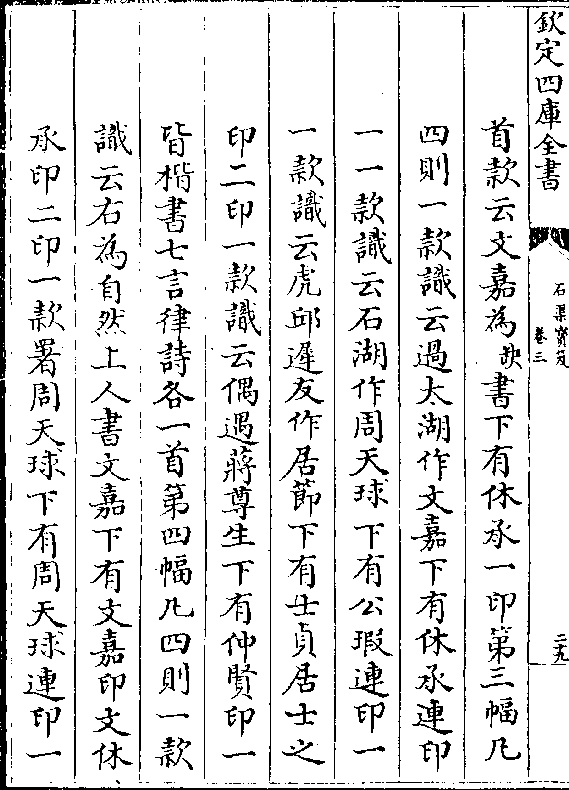 欽定四庫全書
石渠寶笈
卷三
二九
首款云文嘉為缺書下有休承一印第三幅凡
四則一款識云過太湖作文嘉下有休承連印
一一款識云石湖作周天球下有公瑕連印一
一款識云虎邱遲友作居節下有士貞居士之
印二印一款識云偶遇蔣尊生下有仲賢印一
皆楷書七言律詩各一首第四幅凡四則一款
識云右為自然上人書文嘉下有文嘉印文休
承印二印一款署周天球下有周天球連印一